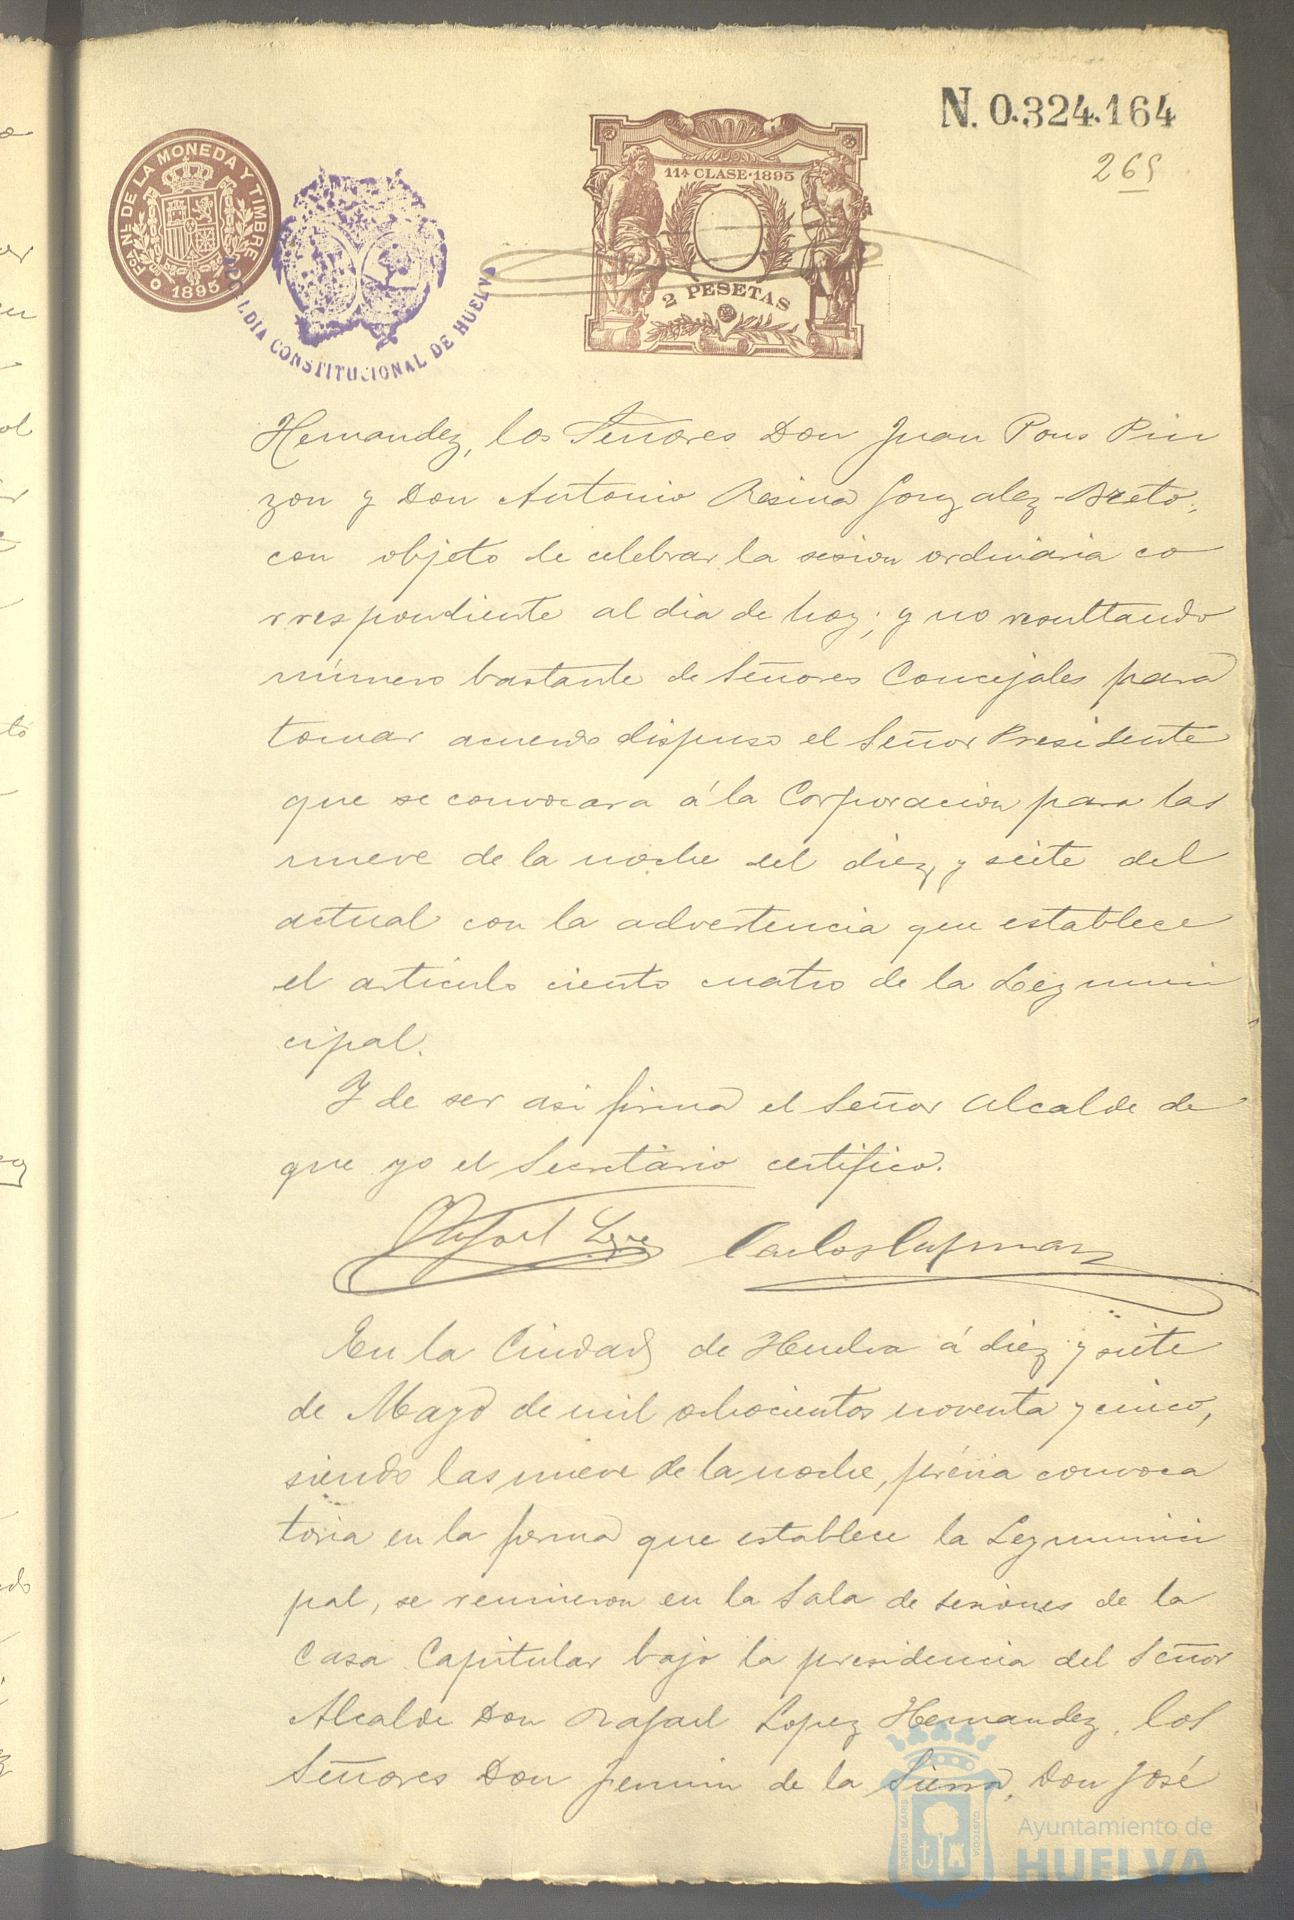 N. 0.324.164
265
FCA. NL. DE LA MONEDA Y TIMBRE
1895
11ª CLASE·1895
2 PESETAS
CONSTITUCIONAL DE HUELVA
Hernandez, los Señores Don Juan Pons Pin
zon y Don Antonio Resina Gonzalez-Brito,
con objeto de celebrar la sesion ordinaria co
rrespondiente al dia de hoy; y no resultando
número bastante de Señores Concejales para
tomar acuerdo dispuso el Señor Presidente
que se convocara á la Corporacion para las
nueve de la noche del diez y siete del
actual con la advertencia que establece
el articulo ciento cuatro de la Ley muni
cipal.
Y de ser asi firma el Señor Alcalde de
que yo el Secretario certifico.
Rafael Lopez
Carlos
En la Ciudad de Huelva á diez y siete
de Mayo de mil ochocientos noventa y cinco,
siendo las nueve de la noche, prévia convoca
toria en la forma que establece la Ley munici
pal, se reunieron en la Sala de sesiones de la
Casa Capitular bajo la presidencia del Señor
Alcalde Don Rafael Lopez Hernandez, los
Señores Don Fermin de la Sierra, Don José
PORTUS MARIS
CUSTODIA
Ayuntamiento de
HUELVA